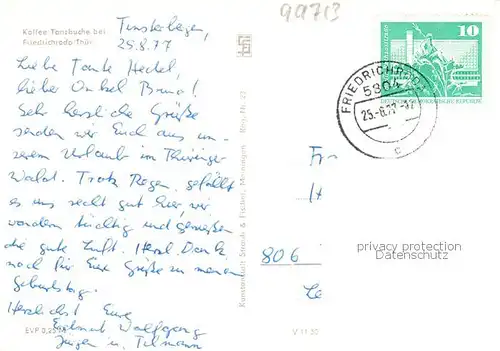 99713
Kaffee Tanzbuche bei
Friedrichroda/Thür.
Finsterbergen,
25.8.77
Liebe Tante Heckel,
lieber Onkel Bruno!
Sehr herzliche Grüße
senden wir Euch aus un-
serem Urlaub im Thüringer
Wald. Trotz Regen gefällt
es uns recht gut hier, wir
wandern tüchtig und genießen
die gute Luft. Herzl. Dank
noch für Eure Grüße zu meinem
Geburtstag.
Herzlichst Eure
Wolfgang
Jürgen u. Tilmann
EVP 0,25 M
Kunstanstalt Straub & Fischer, Meiningen
V 11 50
10
DEUTSCHE DEMOKRATISCHE REPUBLIK
FRIEDRICHRODA
5804
25.-8.77
c
Fr
806
privacy protection
Datenschutz